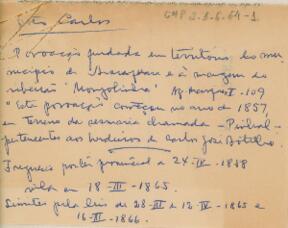 São Carlos
CMP 2.1.6.64-1
Povoação fundada em território do mu-
nicipio de Araraquara e à margem do
ribeirão "Monjolinho"
"Esta povoação começou no ano de 1857,
em terreno da sesmaria chamada - Pinhal -
pertencentes aos herdeiros de Carlos José Botelho.
Freguesia por lei provincial de 24-IV-1858
vila em 18-III-1865.
Limites pela lei de 28-III e 12-IV-1865 e
16-III-1866.